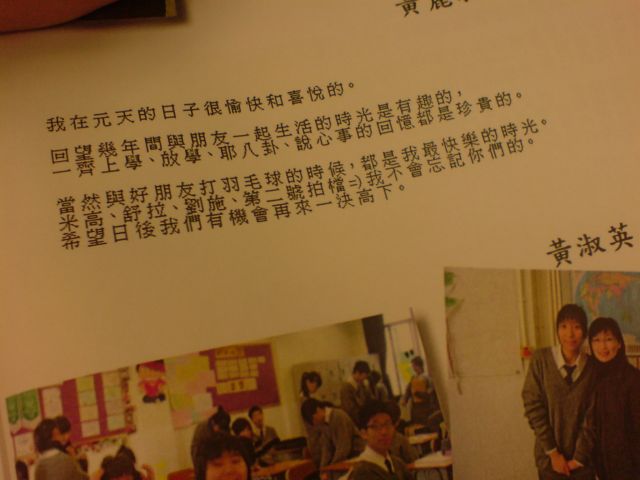 黃麗
我在元天的日子很愉快和喜悅的。
回望幾年間與朋友一起生活的時光是有趣的，
一齊上學、放學、耶八卦、說心事的回憶都是珍貴的。
當然與好朋友打羽毛球的時候，都是我最快樂的時光。
米高、舒拉、劉施、第二號拍檔=)我不會忘記你們的。
希望日後我們有機會再來一決高下。
黃淑英